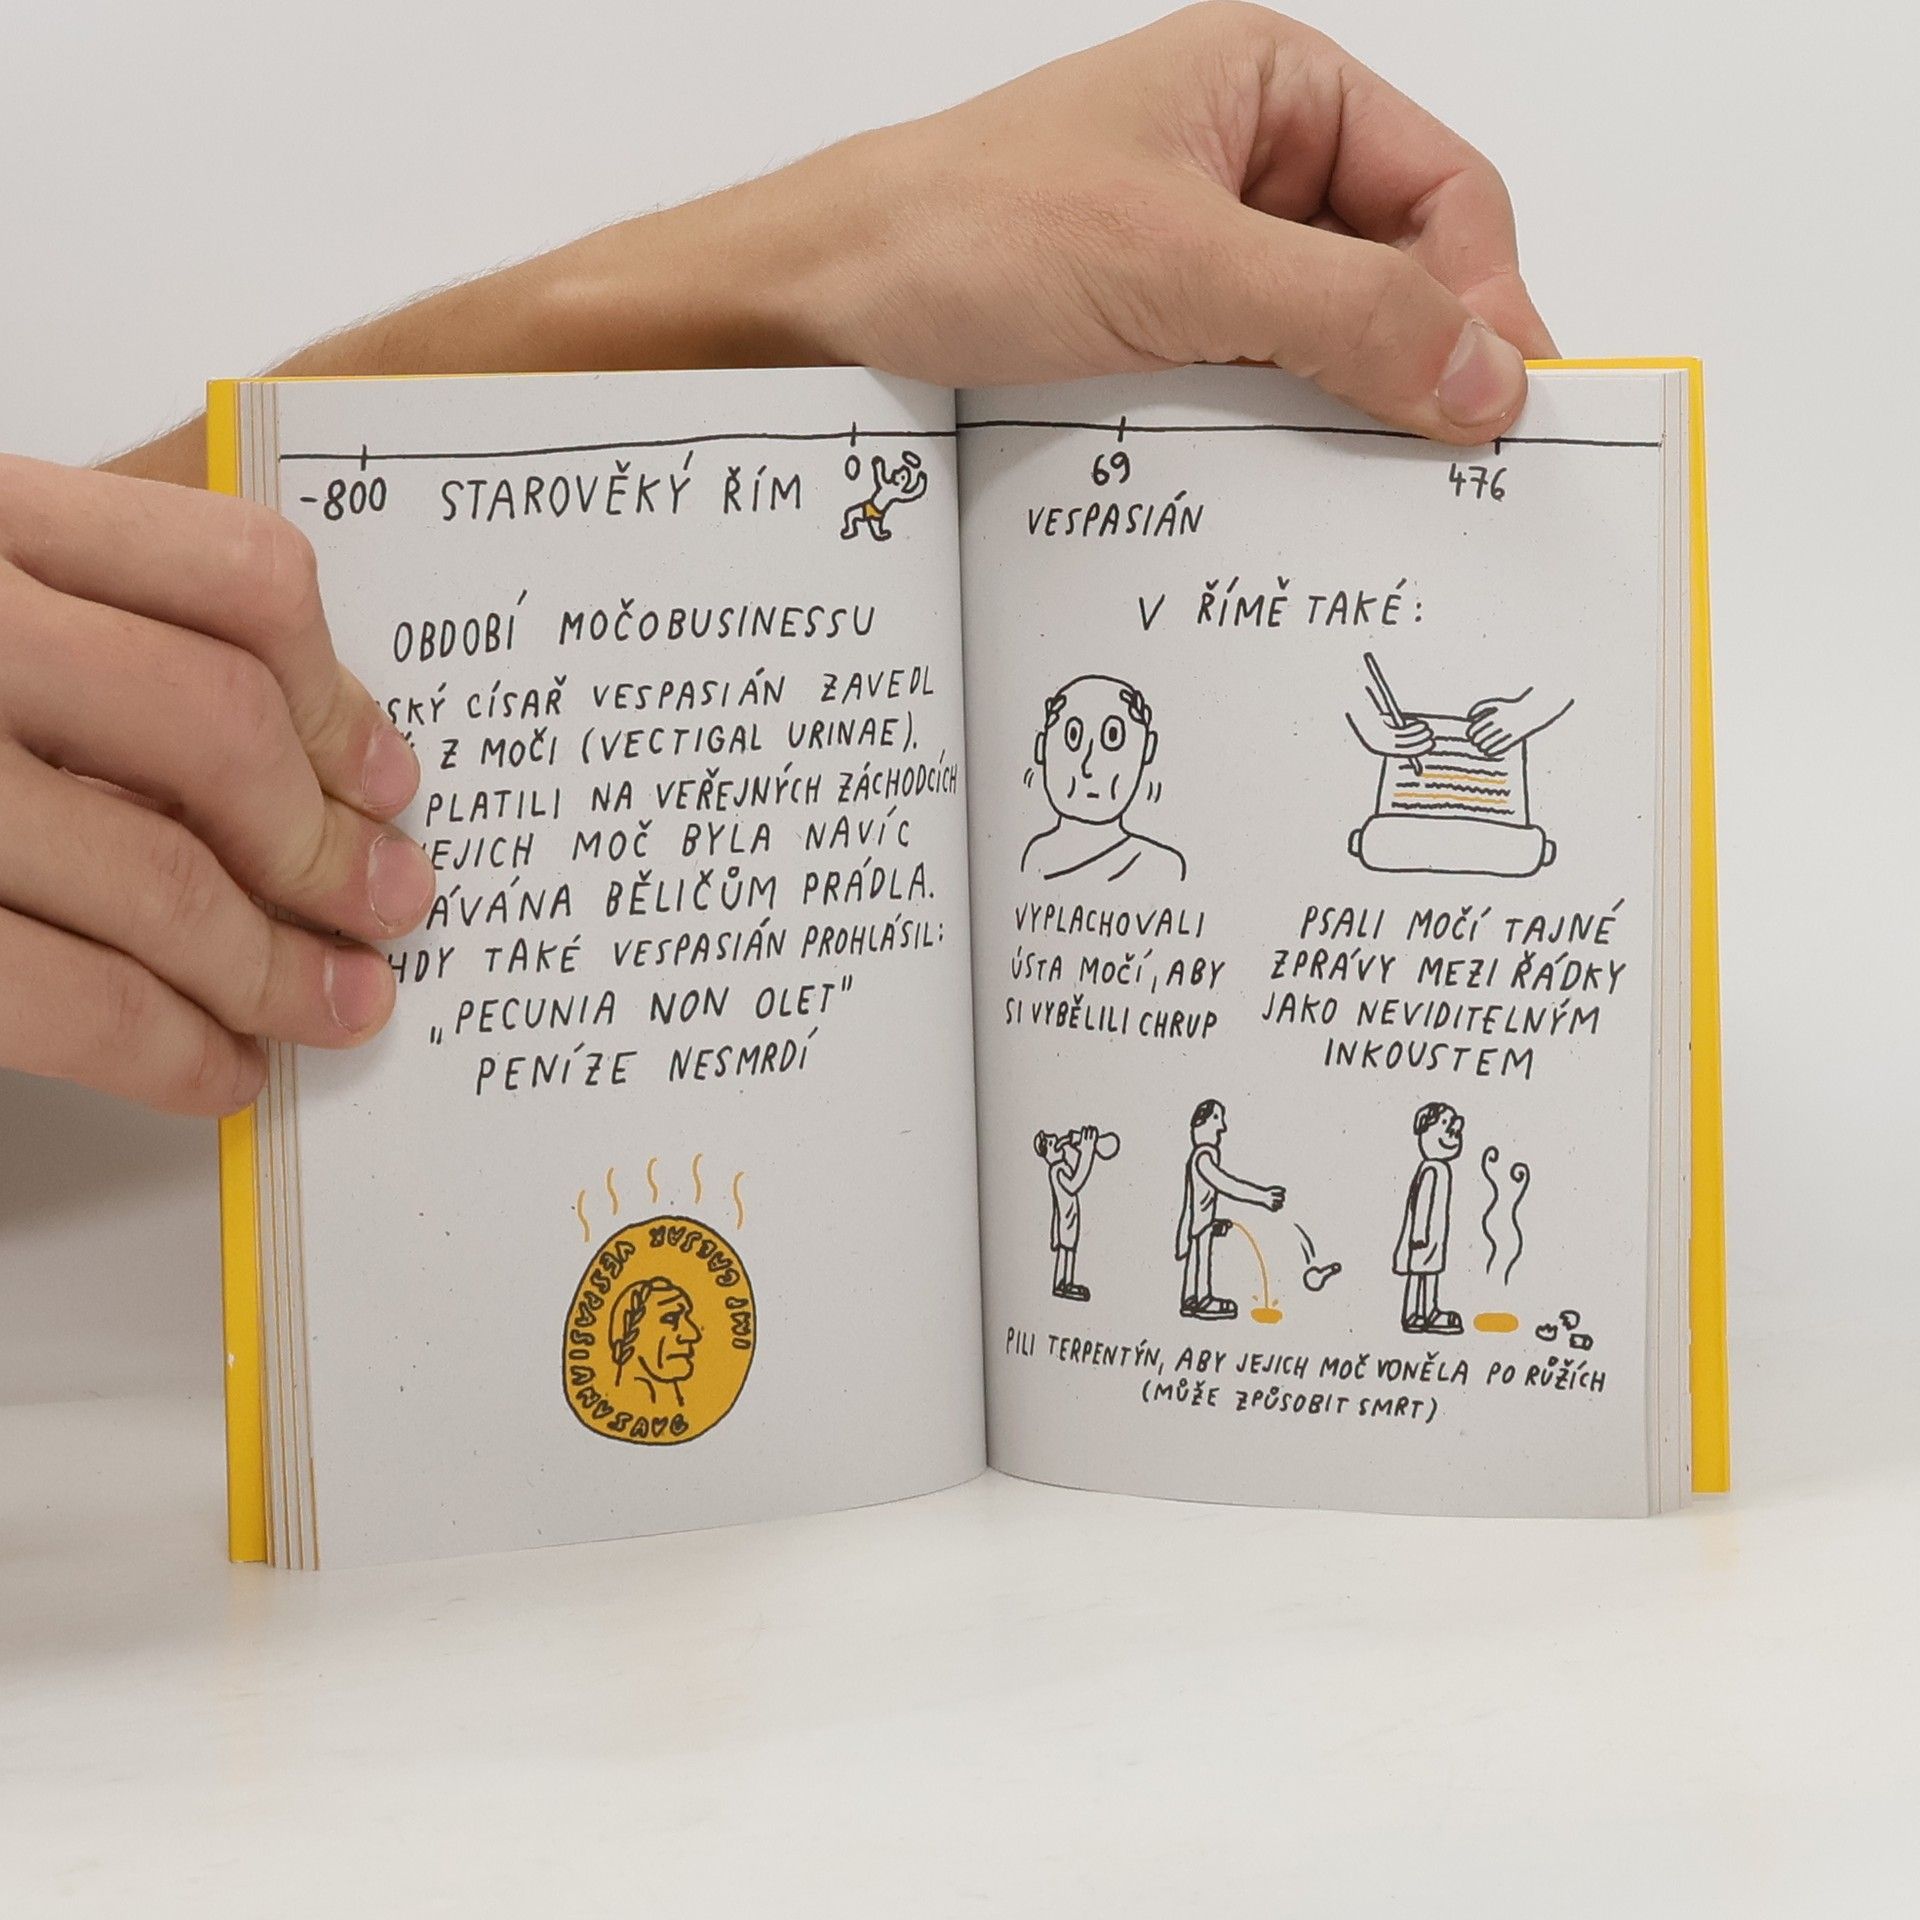 -800 STAROVĚKÝ ŘÍM 0
OBDOBÍ MOČOBUSINESSU
CÍSAŘ VESPASIÁN ZAVEDL
Z MOČI (VECTIGAL URINAE).
PLATILI NA VEŘEJNÝCH ZÁCHODCÍCH
MOČ BYLA NAVÍC
BĚLIČŮM PRÁDLA.
TAKÉ VESPASIÁN PROHLÁSIL:
„PECUNIA NON OLET"
PENÍZE NESMRDÍ
IMP CAESAR VESPASIANUSAUG
69 476
VESPASIÁN
V ŘÍMĚ TAKÉ:
VYPLACHOVALI
ÚSTA MOČÍ, ABY
SI VYBĚLILI CHRUP
PSALI MOČÍ TAJNÉ
ZPRÁVY MEZI ŘÁDKY
JAKO NEVIDITELNÝM
INKOUSTEM
PILI TERPENTÝN, ABY JEJICH MOČ VONĚLA PO RŮŽÍCH
(MŮŽE ZPŮSOBIT SMRT)